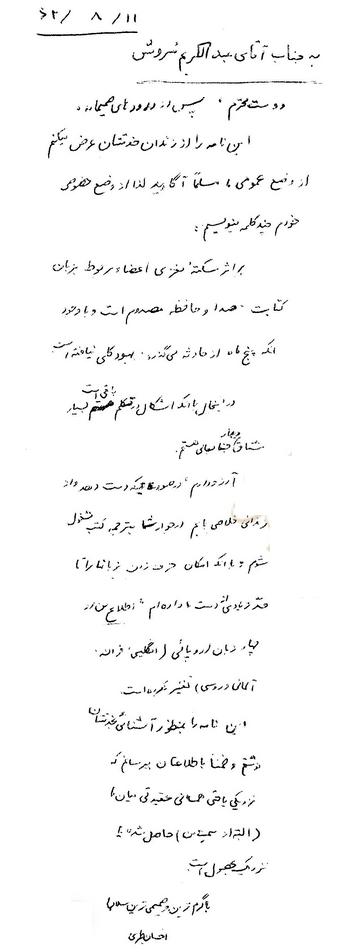 ۶۲/ ۸ / ۱۱
به جناب آقای عبدالکریم سروش
دوست محترم، پس از درودهای صمیمانه،
این نامه را از زندان خدمتتان عرض میکنم
از وضع عمومی ما مسلماً آگاهید لذا از وضع خصوصی
خودم چند کلمه بنویسم:
بر اثر سکته مغزی اعضاء مربوط بزبان
کتابت، صدا و حافظه مصدوم است و باوجود
آنکه پنج ماه از حادثه می‌گذرد، بهبود کلی نیافته است
در اینحال با آنکه اشکال در تکلم باقی است بسیار
مشتاق دیدار جنابعالی هستم.
آرزو دارم، در صورتیکه دست دهد و از
زندانی خلاصی یابم در جوار شما بترجمه کتب مشغول
شوم و با آنکه امکان حرف زدن زبانها را تا
حد زیادی از دست داده‌ام، اطلاع من از
چهار زبان اروپائی (انگلیسی، فرانسه،
آلمانی و روسی) تغییر نکرده است.
این نامه را بمنظور آشنائی خدمتتان
نوشتم و ضمناً باطلاعتان میرسانم که
نزدیکی یا حتی همسانی عقیدتی میان ما
(البته از سمپاتی) حاصل شده یا
نزدیک بحصول است.
با گرم ترین و صمیمی ترین سلامها
احسان طبری